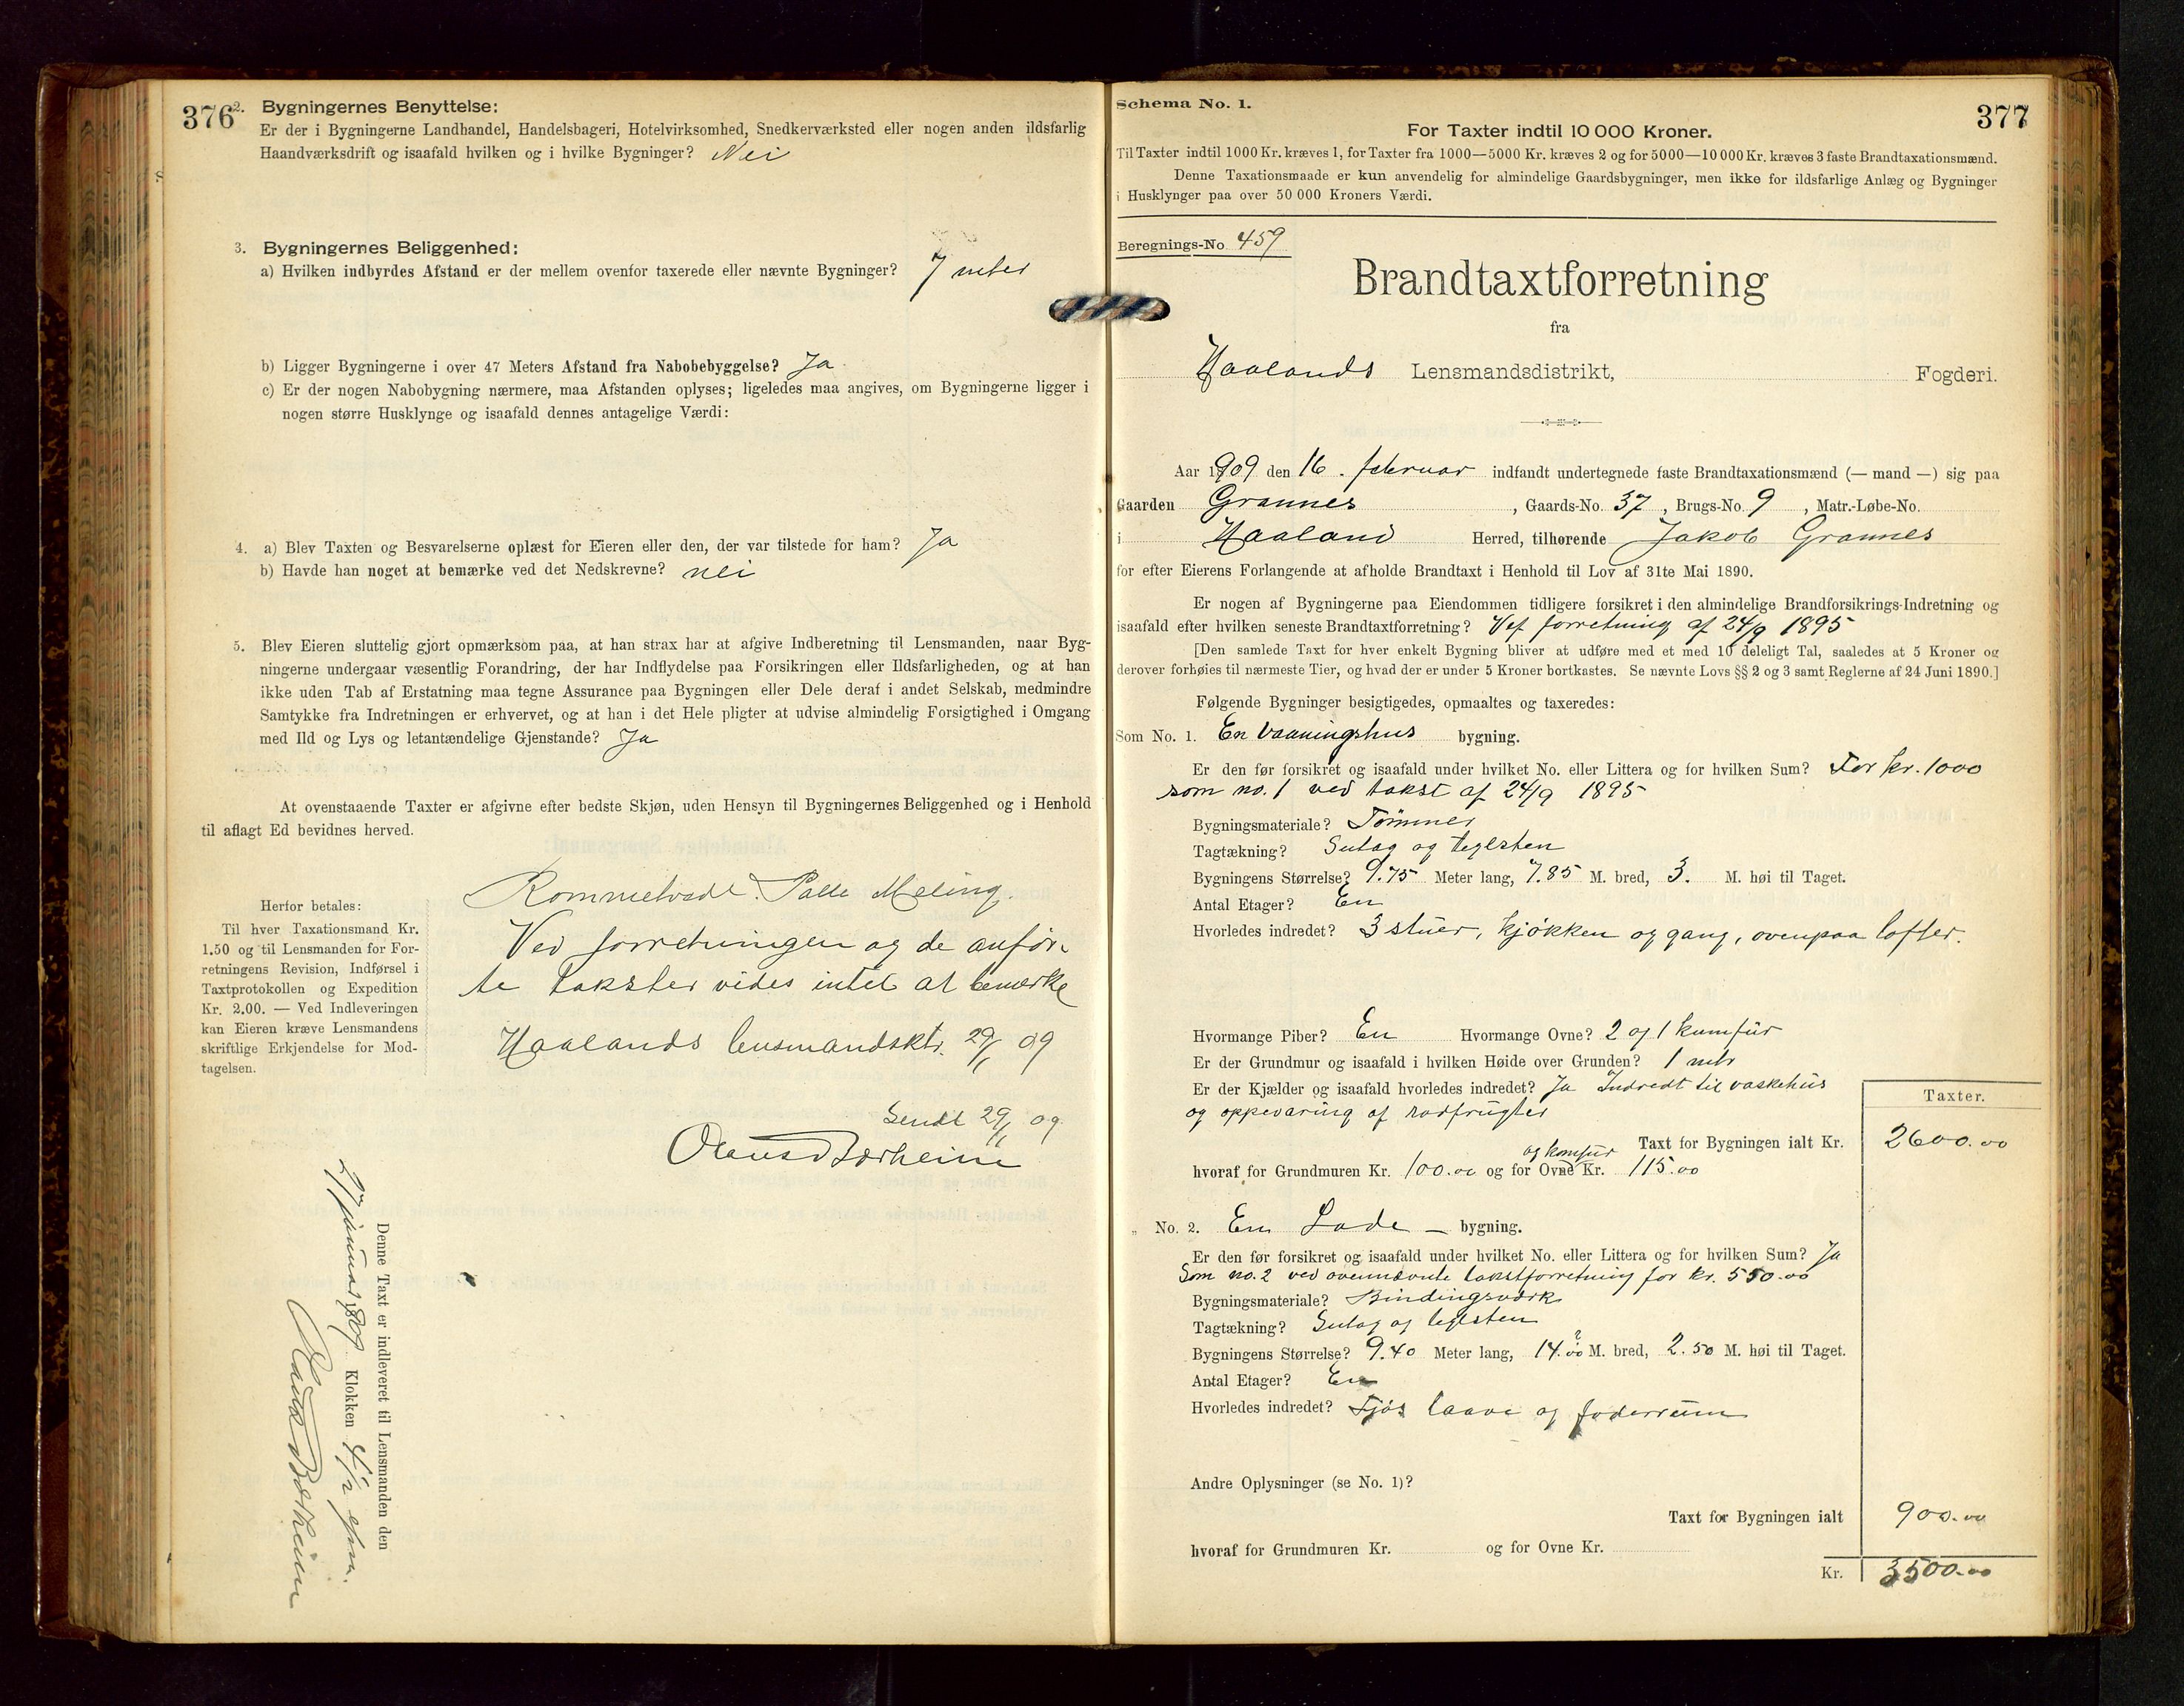 376
2. Bygningernes Benyttelse:
Er der i Bygningerne Landhandel, Handelsbageri, Hotelvirksomhed, Snedkerværksted eller nogen anden ildsfarlig
Haandværksdrift og isaafald hvilken og i hvilke Bygninger? Nei
3. Bygningernes Beliggenhed:
a) Hvilken indbyrdes Afstand er der mellem ovenfor taxerede eller nævnte Bygninger? 7 meter
b) Ligger Bygningerne i over 47 Meters Afstand fra Nabobebyggelse? Ja
c) Er der nogen Nabobygning nærmere, maa Afstanden oplyses; ligeledes maa angives, om Bygningerne ligger i
nogen større Husklynge og isaafald dennes antagelige Værdi:
4. a) Blev Taxten og Besvarelserne oplæst for Eieren eller den, der var tilstede for ham? Ja
b) Havde han noget at bemærke ved det Nedskrevne? nei
5. Blev Eieren sluttelig gjort opmærksom paa, at han strax har at afgive Indberetning til Lensmanden, naar Byg-
ningerne undergaar væsentlig Forandring, der har Indflydelse paa Forsikringen eller Ildsfarligheden, og at han
ikke uden Tab af Erstatning maa tegne Assurance paa Bygningen eller Dele deraf i andet Selskab, medmindre
Samtykke fra Indretningen er erhvervet, og at han i det Hele pligter at udvise almindelig Forsigtighed i Omgang
med Ild og Lys og letantændelige Gjenstande? Ja
At ovenstaaende Taxter er afgivne efter bedste Skjøn, uden Hensyn til Bygningernes Beliggenhed og i Henhold
til aflagt Ed bevidnes herved.
Rommetvedt. Palle Meling.
Ved forretningen og de anfør-
te takster vides intet at bemærke
Haalands lensmandsktr. 29/1 09
Sendt 29/1 09
Herfor betales:
Til hver Taxationsmand Kr.
1.50 og til Lensmanden for For-
retningens Revision, Indførsel i
Taxtprotokollen og Expedition
Kr. 2.00. — Ved Indleveringen
kan Eieren kræve Lensmandens
skriftlige Erkjendelse for Mod-
tagelsen.
Denne Taxt er indleveret til Lensmanden den
januar 1909 Klokken 4 1/2 efm.
Schema No. 1.
377
For Taxter indtil 10 000 Kroner.
Til Taxter indtil 1000 Kr. kræves 1, for Taxter fra 1000—5000 Kr. kræves 2 og for 5000—10 000 Kr. kræves 3 faste Brandtaxationsmænd.
Denne Taxationsmaade er kun anvendelig for almindelige Gaardsbygninger, men ikke for ildsfarlige Anlæg og Bygninger
i Husklynger paa over 50 000 Kroners Værdi.
Beregnings-No 459
Brandtaxtforretning
fra
Haalands Lensmandsdistrikt, Fogderi.
Aar 1909 den 16. februar indfandt undertegnede faste Brandtaxationsmænd (— mand —) sig paa
Gaarden Grannes, Gaards-No. 37, Brugs-No. 9, Matr.-Løbe-No.
i Haaland Herred, tilhørende Jakob Grannes
for efter Eierens Forlangende at afholde Brandtaxt i Henhold til Lov af 31te Mai 1890.
Er nogen af Bygningerne paa Eiendommen tidligere forsikret i den almindelige Brandforsikrings-Indretning og
isaafald efter hvilken seneste Brandtaxtforretning? Ved forretning af 24/9 1895
[Den samlede Taxt for hver enkelt Bygning bliver at udføre med et med 10 deleligt Tal, saaledes at 5 Kroner og
derover forhøies til nærmeste Tier, og hvad der er under 5 Kroner bortkastes. Se nævnte Lovs §§ 2 og 3 samt Reglerne af 24 Juni 1890.]
Følgende Bygninger besigtigedes, opmaaltes og taxeredes:
Som No. 1. En vaaningshus bygning.
Er den før forsikret og isaafald under hvilket No. eller Littera og for hvilken Sum? For kr. 1000
som no. 1 ved takst af 24/9 1895
Bygningsmateriale? Tømmer
Tagtækning? Sutag og teglsten
Bygningens Størrelse? 9.75 Meter lang, 7.85 M. bred, 3. M. høi til Taget.
Antal Etager? En
Hvorledes indredet? 3 stuer, kjøkken og gang, ovenpaa lofter.
Hvormange Piber? En Hvormange Ovne? 2 og 1 kumfür
Er der Grundmur og isaafald i hvilken Høide over Grunden? 1 mtr
Er der Kjælder og isaafald hvorledes indredet? Ja Indredt til vaskehus
og oppevaring af rodfrugter
Taxter.
Taxt for Bygningen ialt Kr. 2600.00
hvoraf for Grundmuren Kr. 100.00 og for Ovne og komfur Kr. 115.00
„ No. 2. En Lade — bygning.
Er den før forsikret og isaafald under hvilket No. eller Littera og for hvilken Sum? Ja
Som no. 2 ved ovennævnte takstforretning for kr. 550.00
Bygningsmateriale? Bindingsværk
Tagtækning? Sutag og teglsten
Bygningens Størrelse? 9.40 Meter lang, 14.00 ? M. bred, 2.50 M. høi til Taget.
Antal Etager? En
Hvorledes indredet? Fjøs laave og foderrum
Andre Oplysninger (se No. 1)?
Taxt for Bygningen ialt 900.00
hvoraf for Grundmuren Kr. og for Ovne Kr.
Kr. 3500.00